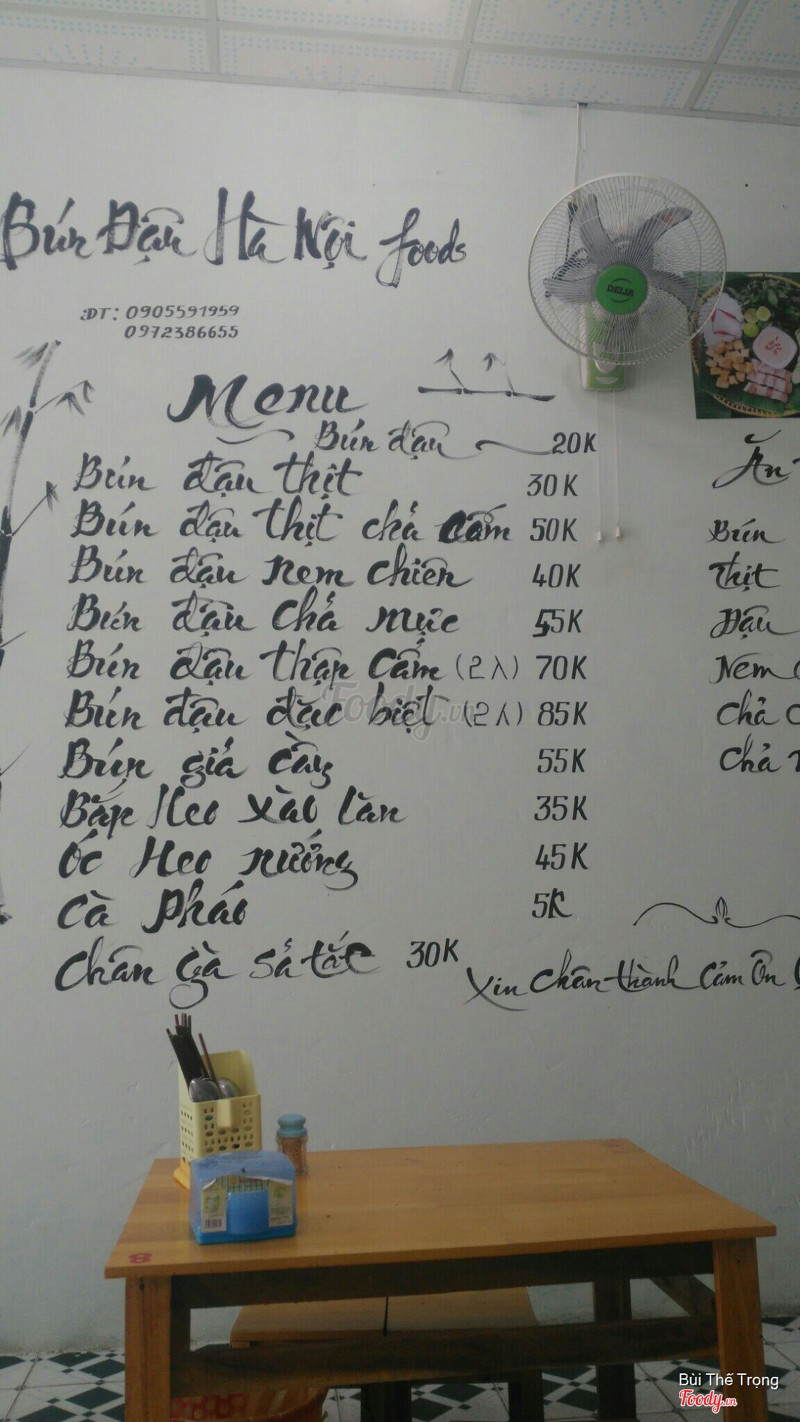 Bún Đậu Hà Nội foods
ĐT: 0905591959
0972386655
DELTA
Menu
Bún đậu 20K
Bún đậu thịt 30K
Bún đậu thịt chả cốm 50K
Bún đậu nem chiên 40K
Bún đậu chả mực 55K
Bún đậu thập cẩm (2人) 70K
Bún đậu đặc biệt (2人) 85K
Bún giả cầy 55K
Bắp Heo xào lăn 35K
Óc Heo nướng 45K
Cà Pháo 5K
Chân gà sả tắc 30K
Ăn
Bún
Thịt
Đậu
Nem
Chả
Chả
Xin Chân thành Cảm Ơn
8
Foody.vn
Bùi Thế Trọng
Foody.vn